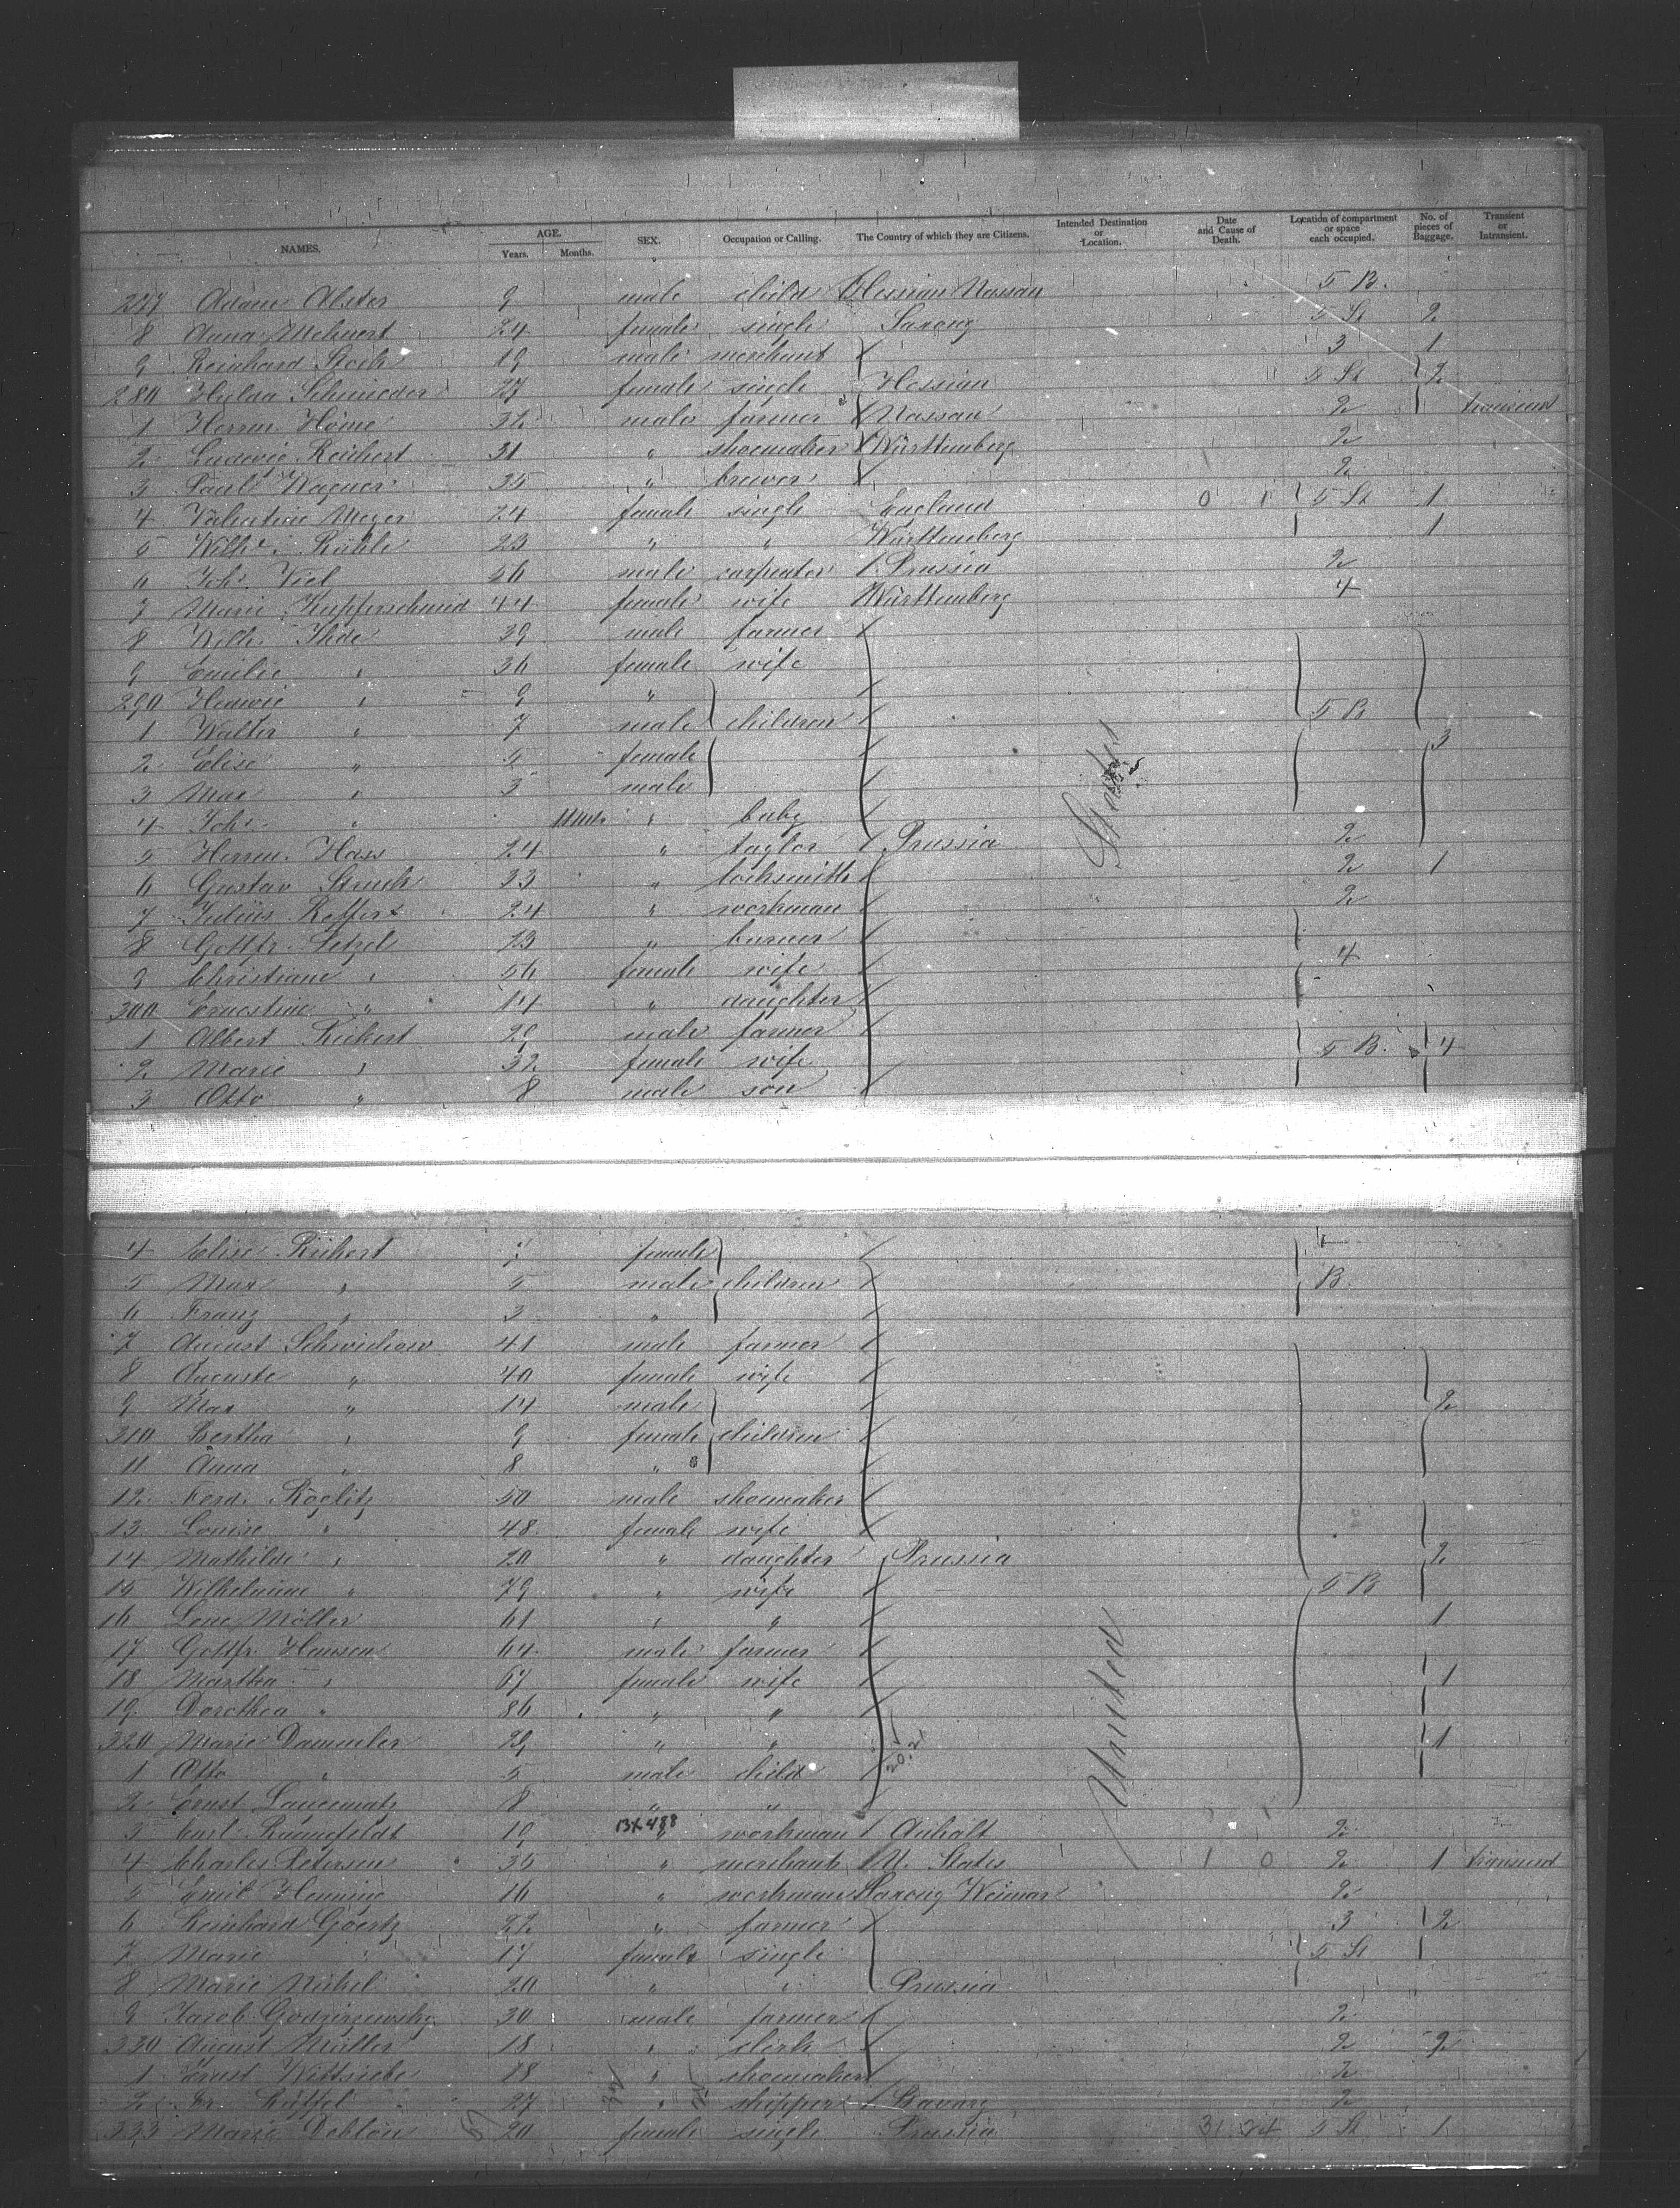 NAMES. AGE. Years. Months. SEX. Occupation or Calling. The Country of which they are Citizens. Intended Destination or Location. Date and Cause of Death. Location of compartment or space each occupied. No. of pieces of Baggage. Transient or Intransient.
277 Alster 9 male child Hessian Nassau 5 B.
8 Anna Mehnert 24 female single Saxony 5 St 2
9 Reinhard Koch 19 male merchant 3 1
280 Schmieder 27 female single Hessian 5 St 2
1 Herm. Höme 32 male farmer Nassau 2 transient
2 Ludwig Reichert 31 " shoemaker Württemberg 2
3 Paul Wagner 35 " brewer 2
4 Valentine Meyer 24 female single England 0 1 5 St 1
5 Wilh. Rühle 23 " " Württemberg 1
6 Joh. Viel 56 male carpenter Prussia 2
7 Marie Kupferschmid 44 female wife Württemberg 4
8 Wilh. Thde 39 male farmer
9 Emilie " 36 female wife
290 Hedwig " 9 "
1 Walter " 7 male children 5 B
2 Elise " 5 female 3
3 Max " 3 male
4 Joh. " " baby
5 Herm. Hass 24 " taylor Prussia 2
6 Gustav Struck 23 " locksmith 2 1
7 Julius Reffert 24 " workman 2
8 Gottfr. Setzel "
9 Christiane " 56 female wife 4
300 Ernestine " 14 " daughter
1 Albert Rickert 29 male farmer
2 Marie " 32 female wife 5 B. 4
3 Otto " 8 male son
States
4 Elise Rickert 7 female
5 Max " 5 male children B.
6 Franz " 3 "
7 August Schwichow 41 male farmer
8 Auguste " 40 female wife
9 Max " 14 male 2
310 Bertha " 9 female children
11 Anna " 8 "
12 Ferd. Röglitz 50 male shoemaker
13 Louise " 48 female wife
14 Mathilde " 20 " daughter Prussia 2
15 Wilhelmine " 79 " wife 5 B
16 Lene Möller 61 " " 1
17 Gottfr. Hansen 64 male farmer
18 Martha " 67 female wife 1
19 Dorothea " 86 " "
320 Marie Dammler 29 " " 1
1 Otto " 5 male child
2 Ernst 8 " "
United
13X488
3 Carl 19 " workman Anhalt 2
4 Charles Petersen 35 " merchant U. States 1 0 2 1 transient
5 Emil Henning 16 " workman Saxony Weimar 2
6 Reinhard Goertz 22 " farmer 3 2
7 Marie " 17 female single 5 St
8 Marie Nickel 20 " " Prussia
9 Jacob 30 male farmer 2
330 August Müller 18 " clerk 2 2
1 Ernst 18 " shoemaker 2
2 Fr. 27 " shipper Bavary 2
333 Marie 20 female single Prussia 31 24 5 St 1